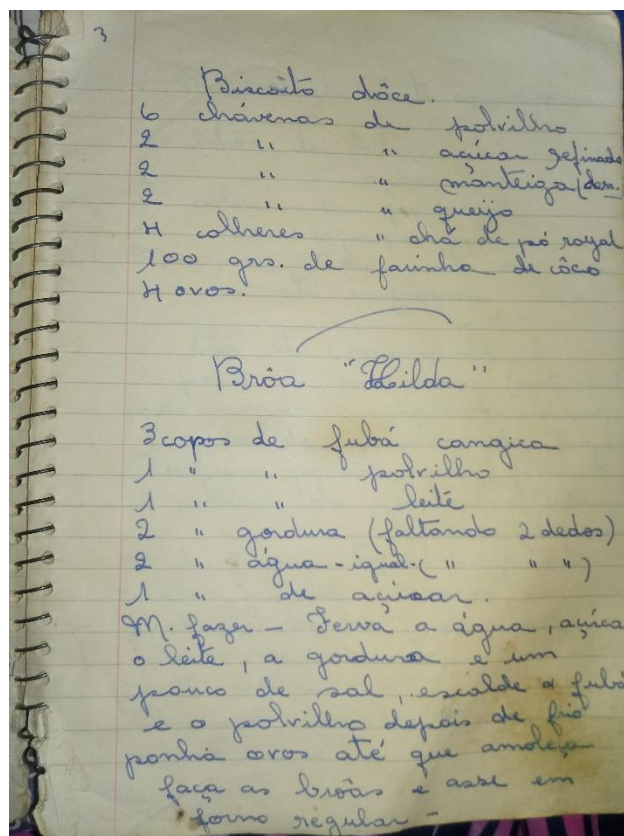 3
Biscoito dôce.
6 chávenas de polvilho
2 " " açúcar refinado
2 " " manteiga (dem.
2 " " queijo
4 colheres " chá de pó royal
100 grs. de farinha de côco
4 ovos.
Brôa "Hilda"
3 copos de fubá cangica
1 " " polvilho
1 " " leite
2 " gordura (faltando 2 dedos)
2 " água - igual - ( " " " )
1 " de açúcar.
M. fazer - Ferva a água, açúca
o leite, a gordura e um
pouco de sal, escalde o fubá
e o polvilho depois de frio
ponha ovos até que amoleça
faça as brôas e asse em
forno regular -